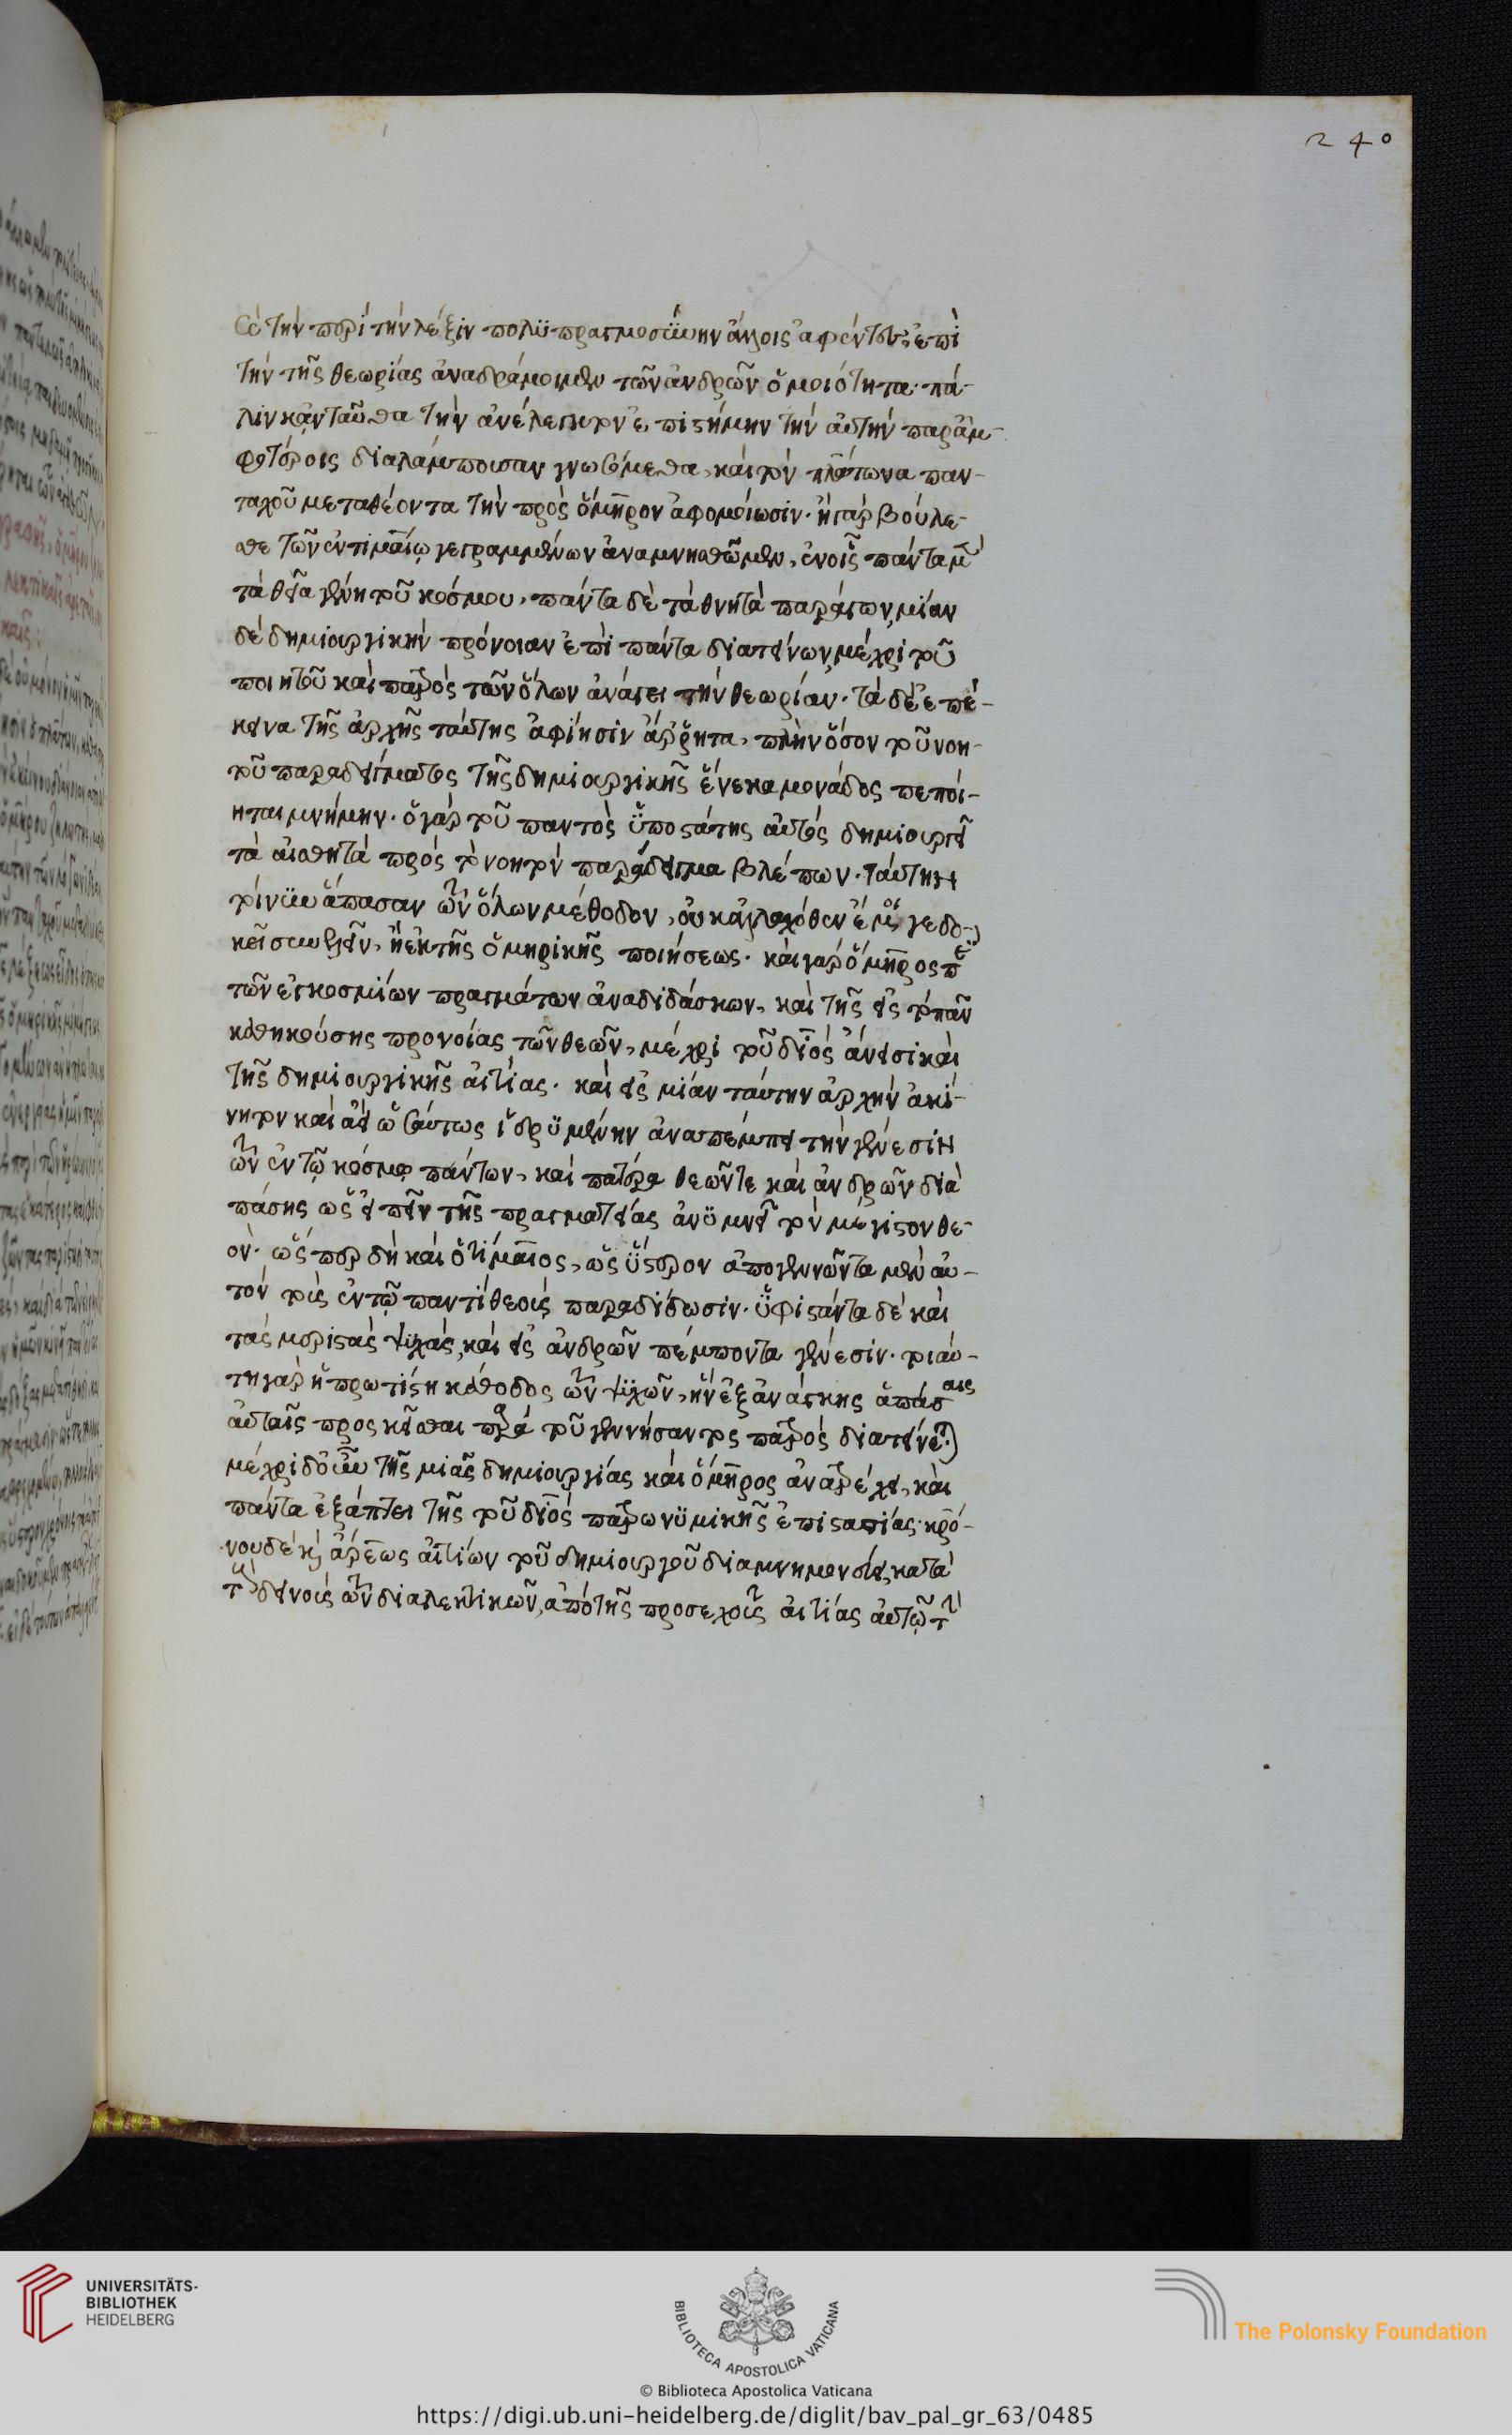 240
σὲ τὴν περὶ τὴν λέξιν πολυπραγμοσύνην ἄλλοις ἀφέντες, ἐπὶ
τὴν τῆς θεωρίας ἀναδράμοιμεν τῶν ἀνδρῶν ὁμοιότητα· πά-
λιν κἀνταῦθα τὴν ἀνέλεγκτον ἐπιστήμην τὴν αὐτὴν παρ' ἀμ-
φοτέροις διαλάμπουσαν γνωσόμεθα, καὶ τὸν πλάτωνα παν-
ταχοῦ μεταθέοντα τὴν πρὸς ὅμηρον ἀφομοίωσιν. ἢ γὰρ βούλε-
σθε τῶν ἐν τιμαίῳ γεγραμμένων ἀναμνησθῶμεν, ἐν οἷς πάντα μὲν
τὰ θεῖα γένη τοῦ κόσμου, πάντα δὲ τὰ θνητὰ παράγων, μίαν
δὲ δημιουργικὴν πρόνοιαν ἐπὶ πάντα διατείνων, μέχρι τοῦ
ποιητοῦ καὶ πατρὸς τῶν ὅλων ἀνάγει τὴν θεωρίαν. τὰ δὲ ἐπέ-
κεινα τῆς ἀρχῆς ταύτης ἀφίησιν ἄρρητα, πλὴν ὅσον τοῦ νοη-
τοῦ παραδείγματος τῆς δημιουργικῆς ἕνεκα μονάδος πεποί-
ηται μνήμην. ὁ γὰρ τοῦ παντὸς ὑποστάτης αὐτὸς δημιουργεῖ
τὰ αἰσθητὰ πρὸς τὸ νοητὸν παράδειγμα βλέπων. ταύτην
τοίνυν ἅπασαν τῶν ὅλων μέθοδον, οὐκ ἀλλαχόθεν ἔμοιγε δο-
κεῖ συνιδεῖν, ἢ ἐκ τῆς ὁμηρικῆς ποιήσεως. καὶ γὰρ ὅμηρος περὶ
τῶν ἐγκοσμίων πραγμάτων ἀναδιδάσκων, καὶ τῆς εἰς τὸ πᾶν
καθηκούσης προνοίας τῶν θεῶν, μέχρι τοῦ διὸς ἄνεισι καὶ
τῆς δημιουργικῆς αἰτίας. καὶ εἰς μίαν ταύτην ἀρχὴν ἀκί-
νητον καὶ ἀεὶ ὡσαύτως ἱδρυμένην ἀναπέμπει τὴν γένεσιν
τῶν ἐν τῷ κόσμῳ πάντων, καὶ πατέρα θεῶν τε καὶ ἀνδρῶν διὰ
πάσης ὡς εἰπεῖν τῆς πραγματείας ἀνυμνεῖ τὸν μέγιστον θε-
όν. ὥσπερ δὴ καὶ ὁ τίμαιος, ὡς ὕστερον ἀπογεννῶντα μὲν αὐ-
τὸν τοὺς ἐν τῷ παντὶ θεοὺς παραδίδωσιν. ὑφιστάντα δὲ καὶ
τὰς μεριστὰς ψυχάς, καὶ εἰς ἀνδρῶν πέμποντα γένεσιν. τοιαύ-
τη γὰρ ἡ πρωτίστη κάθοδος τῶν ψυχῶν, ἣν ἐξ ἀνάγκης ἁπάσαις
αὐταῖς προσκεῖσθαι παρὰ τοῦ γεννήσαντος πατρὸς διατείνεται
μέχρι δ' οὖν τῆς μιᾶς δημιουργίας καὶ ὅμηρος ἀνατρέχει, καὶ
πάντα ἐξάπτει τῆς τοῦ διὸς πατρωνυμικῆς ἐπιστασίας. κρό-
νου δὲ καὶ ἄρεως αἰτίων τοῦ δημιουργοῦ διαμνημονεύει, κατὰ
τοὺς δεινοὺς τῶν διαλεκτικῶν, ἀπὸ τῆς προσεχοῦς αἰτίας αὐτῷ τὴν
UNIVERSITÄTS-
BIBLIOTHEK
HEIDELBERG
BIBLIOTECA APOSTOLICA VATICANA
The Polonsky Foundation
© Biblioteca Apostolica Vaticana
https://digi.ub.uni-heidelberg.de/diglit/bav_pal_gr_63/0485